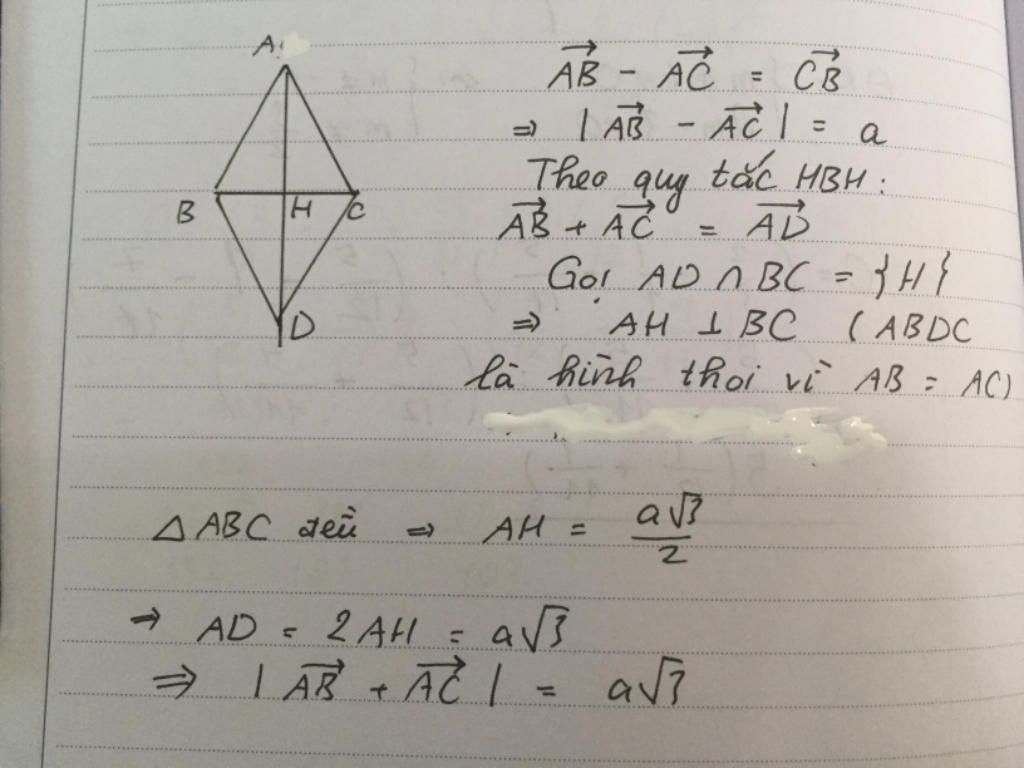 A
B
H
C
D
$\overrightarrow{AB} - \overrightarrow{AC} = \overrightarrow{CB}$
$\Rightarrow |\overrightarrow{AB} - \overrightarrow{AC}| = a$
Theo quy tắc HBH :
$\overrightarrow{AB} + \overrightarrow{AC} = \overrightarrow{AD}$
Gọi AD ∩ BC = {H}
⇒ AH ⊥ BC (ABDC
là hình thoi vì AB = AC)
△ABC đều ⇒ AH = $\frac{a\sqrt{3}}{2}$
⇒ AD = 2AH = a√3
$\Rightarrow |\overrightarrow{AB} + \overrightarrow{AC}| = a\sqrt{3}$